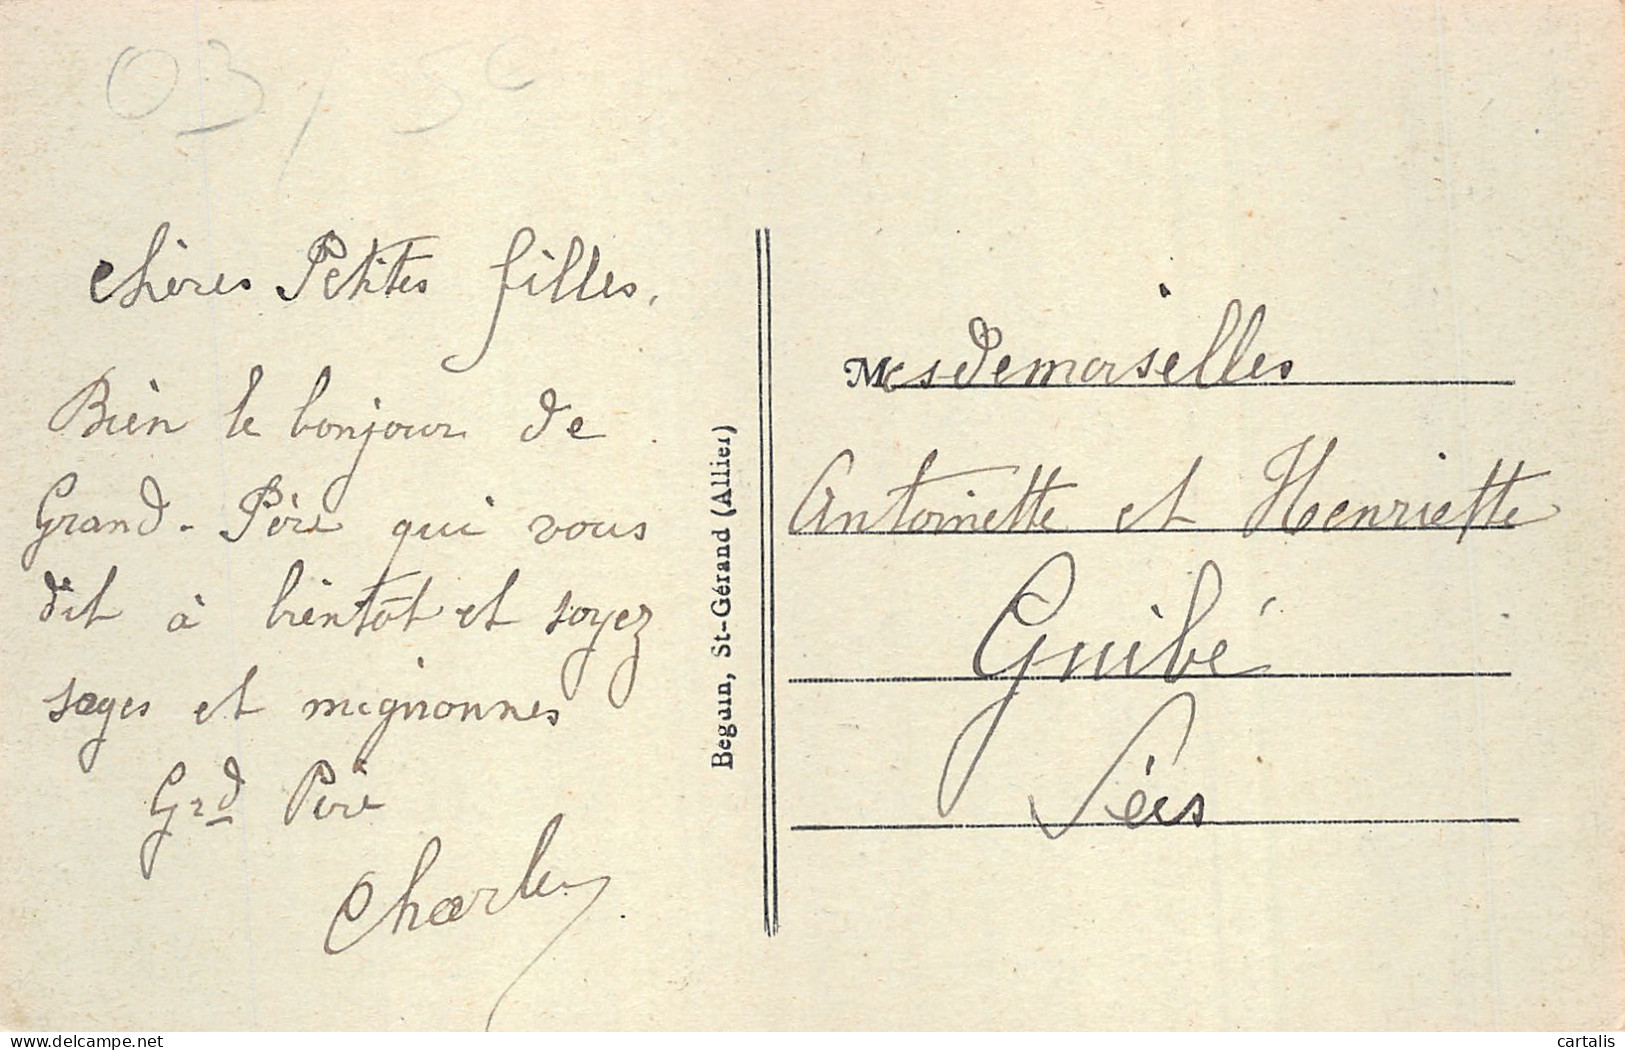 03 / 50
Chères Petites filles,
Bien le bonjour de
Grand-Père qui vous
dit à bientôt et soyez
sages et mignonnes
Grd Père
Charles
Beguin, St-Gérand (Allier)
Mesdemoiselles
Antoinette et Henriette
Guibé
Sées
delcampe.net
cartalis